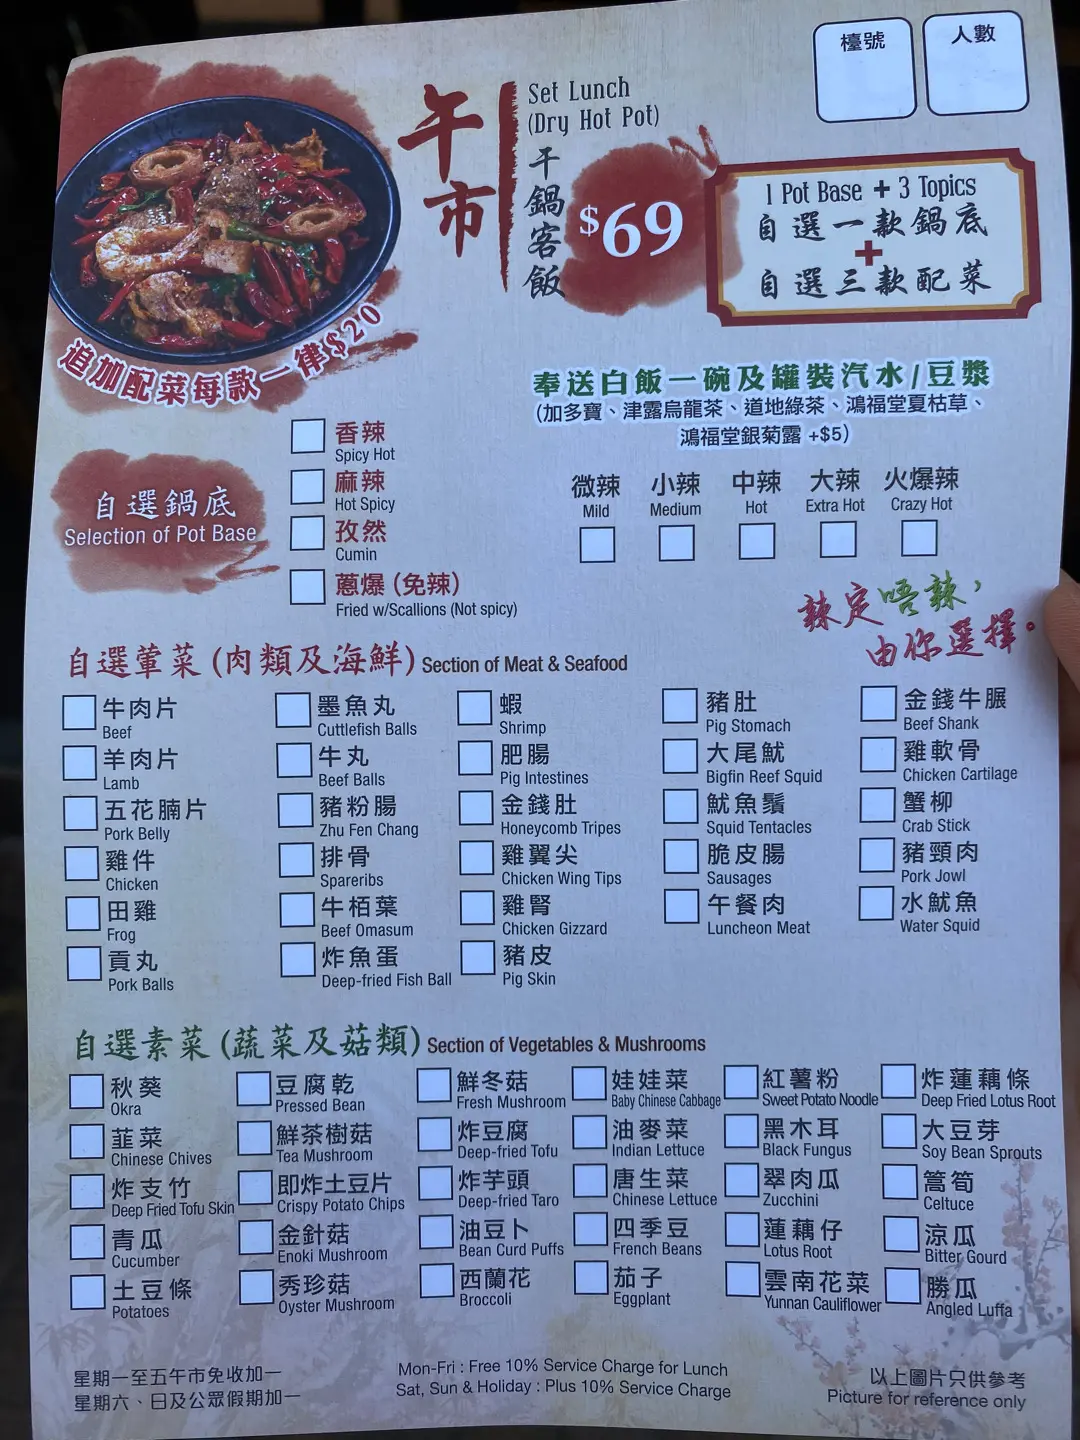 檯號
人數
午市
Set Lunch
(Dry Hot Pot)
干鍋客飯
$69
1 Pot Base + 3 Topics
自選一款鍋底
+
自選三款配菜
追加配菜每款一律$20
奉送白飯一碗及罐裝汽水/豆漿
(加多寶、津露烏龍茶、道地綠茶、鴻福堂夏枯草、
鴻福堂銀菊露 +$5)
自選鍋底
Selection of Pot Base
香辣
Spicy Hot
麻辣
Hot Spicy
孜然
Cumin
蔥爆 (免辣)
Fried w/Scallions (Not spicy)
微辣
Mild
小辣
Medium
中辣
Hot
大辣
Extra Hot
火爆辣
Crazy Hot
辣定唔辣，
由你選擇。
自選葷菜 (肉類及海鮮) Section of Meat & Seafood
牛肉片
Beef
羊肉片
Lamb
五花腩片
Pork Belly
雞件
Chicken
田雞
Frog
貢丸
Pork Balls
墨魚丸
Cuttlefish Balls
牛丸
Beef Balls
豬粉腸
Zhu Fen Chang
排骨
Spareribs
牛栢葉
Beef Omasum
炸魚蛋
Deep-fried Fish Ball
蝦
Shrimp
肥腸
Pig Intestines
金錢肚
Honeycomb Tripes
雞翼尖
Chicken Wing Tips
雞腎
Chicken Gizzard
豬皮
Pig Skin
豬肚
Pig Stomach
大尾魷
Bigfin Reef Squid
魷魚鬚
Squid Tentacles
脆皮腸
Sausages
午餐肉
Luncheon Meat
金錢牛𦟌
Beef Shank
雞軟骨
Chicken Cartilage
蟹柳
Crab Stick
豬頸肉
Pork Jowl
水魷魚
Water Squid
自選素菜 (蔬菜及菇類) Section of Vegetables & Mushrooms
秋葵
Okra
韮菜
Chinese Chives
炸支竹
Deep Fried Tofu Skin
青瓜
Cucumber
土豆條
Potatoes
豆腐乾
Pressed Bean
鮮茶樹菇
Tea Mushroom
即炸土豆片
Crispy Potato Chips
金針菇
Enoki Mushroom
秀珍菇
Oyster Mushroom
鮮冬菇
Fresh Mushroom
炸豆腐
Deep-fried Tofu
炸芋頭
Deep-fried Taro
油豆卜
Bean Curd Puffs
西蘭花
Broccoli
娃娃菜
Baby Chinese Cabbage
油麥菜
Indian Lettuce
唐生菜
Chinese Lettuce
四季豆
French Beans
茄子
Eggplant
紅薯粉
Sweet Potato Noodle
黑木耳
Black Fungus
翠肉瓜
Zucchini
蓮藕仔
Lotus Root
雲南花菜
Yunnan Cauliflower
炸蓮藕條
Deep Fried Lotus Root
大豆芽
Soy Bean Sprouts
萵筍
Celtuce
涼瓜
Bitter Gourd
勝瓜
Angled Luffa
星期一至五午市免收加一
星期六、日及公眾假期加一
Mon-Fri : Free 10% Service Charge for Lunch
Sat, Sun & Holiday : Plus 10% Service Charge
以上圖片只供參考
Picture for reference only